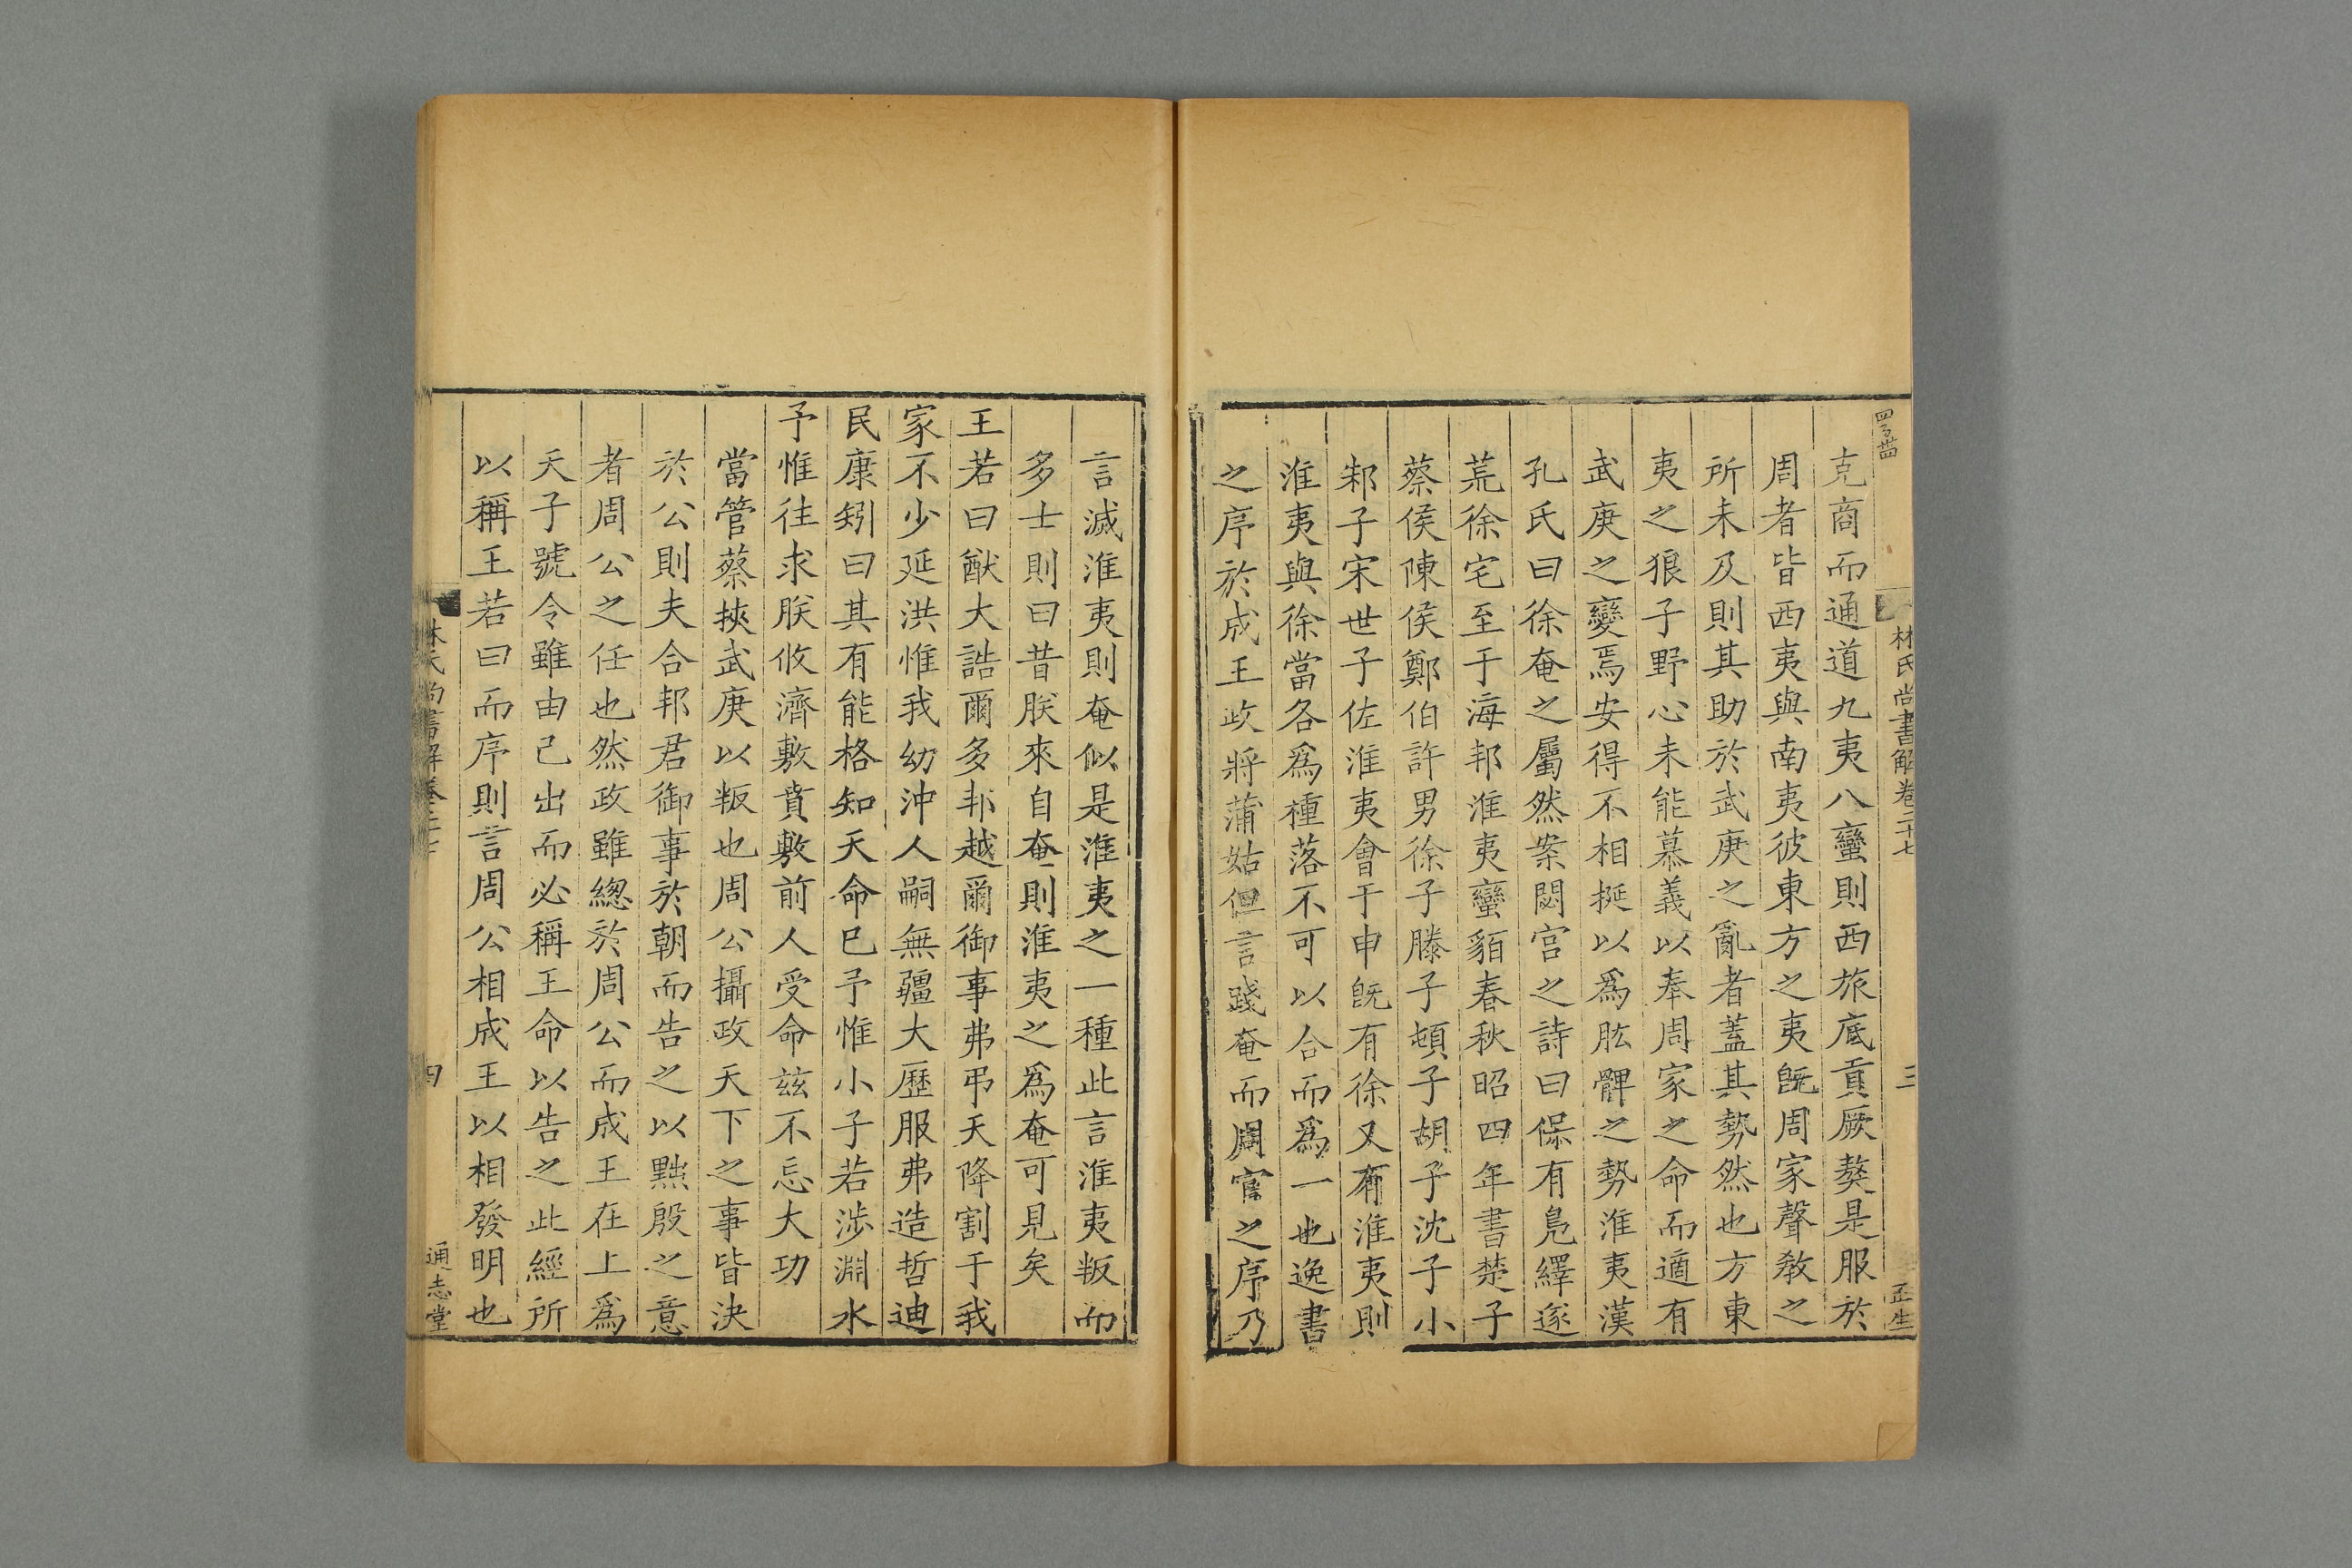 林氏尚書解卷二十七
三
克商而通道九夷八蠻則西旅底貢厥獒是服於
周者皆西夷與南夷彼東方之夷旣周家聲敎之
所未及則其助於武庚之亂者蓋其勢然也方東
夷之狼子野心未能慕義以奉周家之命而適有
武庚之變焉安得不相挻以爲肱髀之勢淮夷漢
孔氏曰徐奄之屬然案閟宮之詩曰保有鳧繹遂
荒徐宅至于海邦淮夷蠻貊春秋昭四年書楚子
蔡侯陳侯鄭伯許男徐子滕子頓子胡子沈子小
邾子宋世子佐淮夷會于申旣有徐又有淮夷則
淮夷與徐當各爲種落不可以合而爲一也逸書
之序於成王政將蒲姑但言踐奄而周官之序乃
言滅淮夷則奄似是淮夷之一種此言淮夷叛而
多士則曰昔朕來自奄則淮夷之爲奄可見矣
王若曰猷大誥爾多邦越爾御事弗弔天降割于我
家不少延洪惟我幼沖人嗣無疆大歷服弗造哲迪
民康矧曰其有能格知天命已予惟小子若涉淵水
予惟往求朕攸濟敷賁敷前人受命玆不忘大功
當管蔡挾武庚以叛也周公攝政天下之事皆決
於公則夫合邦君御事於朝而告之以黜殷之意
者周公之任也然政雖緫於周公而成王在上爲
天子號令雖由己出而必稱王命以告之此經所
以稱王若曰而序則言周公相成王以相發明也
林氏尚書解卷二十七
四
通志堂